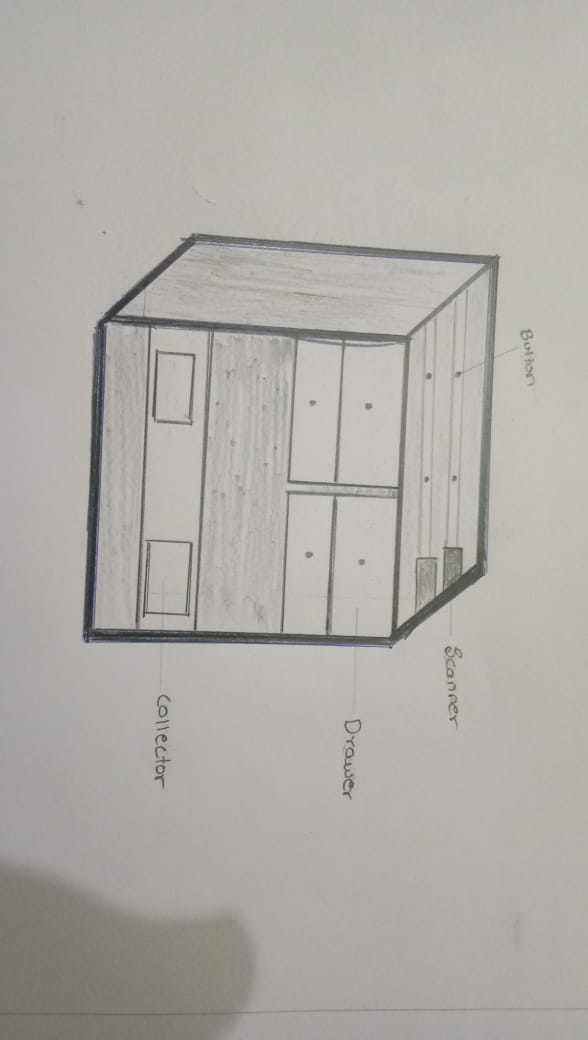 Button
Scanner
Drawer
Collector